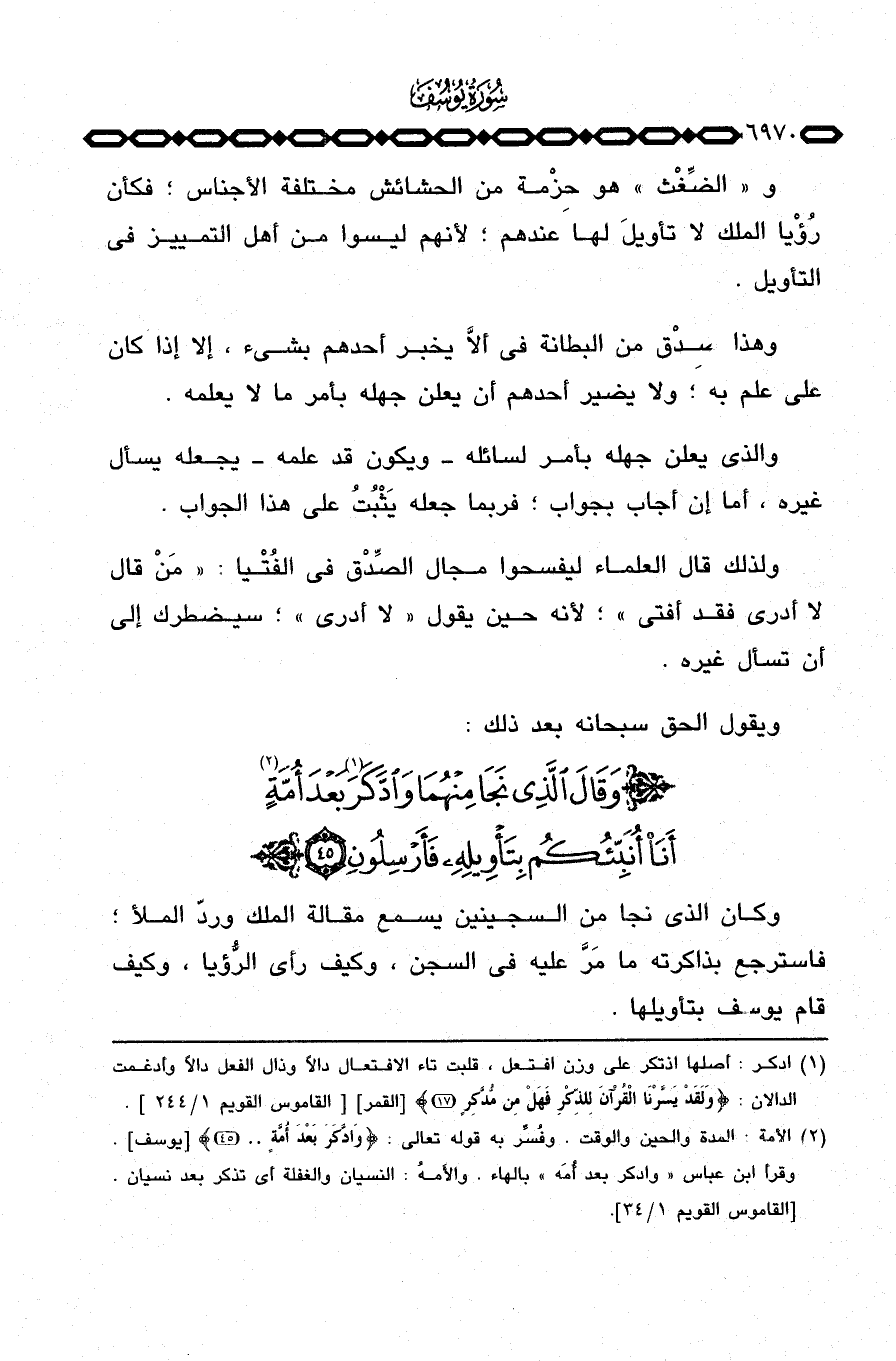 سُورَةُ يُوسُفَ
٦٩٧٠
و « الضِّغْث » هو حزْمة من الحشائش مختلفة الأجناس ؛ فكأن
رُؤْيا الملك لا تأويلَ لها عندهم ؛ لأنهم ليسوا من أهل التمييز فى
التأويل .
وهذا صِدْق من البطانة فى ألاَّ يخبر أحدهم بشىء ، إلا إذا كان
على علم به ؛ ولا يضير أحدهم أن يعلن جهله بأمر ما لا يعلمه .
والذى يعلن جهله بأمر لسائله - ويكون قد علمه - يجعله يسأل
غيره ، أما إن أجاب بجواب ؛ فربما جعله يَثْبُتُ على هذا الجواب .
ولذلك قال العلماء ليفسحوا مجال الصِّدْق فى الفُتْيا : « مَنْ قال
لا أدرى فقد أفتى » ؛ لأنه حين يقول « لا أدرى » ؛ سيضطرك إلى
أن تسأل غيره .
ويقول الحق سبحانه بعد ذلك :
﴿ وَقَالَ ٱلَّذِى نَجَا مِنْهُمَا وَٱدَّكَرَ(١) بَعْدَ أُمَّةٍ(٢)
أَنَا۠ أُنَبِّئُكُم بِتَأْوِيلِهِۦ فَأَرْسِلُونِ ٤٥ ﴾
وكان الذى نجا من السجينين يسمع مقالة الملك وردّ الملأ ؛
فاسترجع بذاكرته ما مَرَّ عليه فى السجن ، وكيف رأى الرُّؤيا ، وكيف
قام يوسف بتأويلها .
(١) ادكر : أصلها اذتكر على وزن افتعل ، قلبت تاء الافتعال دالاً وذال الفعل دالاً وأدغمت
الدالان : ﴿ وَلَقَدْ يَسَّرْنَا الْقُرْآنَ لِلذِّكْرِ فَهَلْ مِن مُّدَّكِرٍ (١٧) ﴾ [القمر] [ القاموس القويم ٢٤٤/١ ] .
(٢) الأمة : المدة والحين والوقت . وفُسِّر به قوله تعالى : ﴿ وَادَّكَرَ بَعْدَ أُمَّةٍ .. (٤٥) ﴾ [يوسف] .
وقرأ ابن عباس « وادكر بعد أُمَه » بالهاء . والأمهُ : النسيان والغفلة أى تذكر بعد نسيان .
[القاموس القويم ٣٤/١].